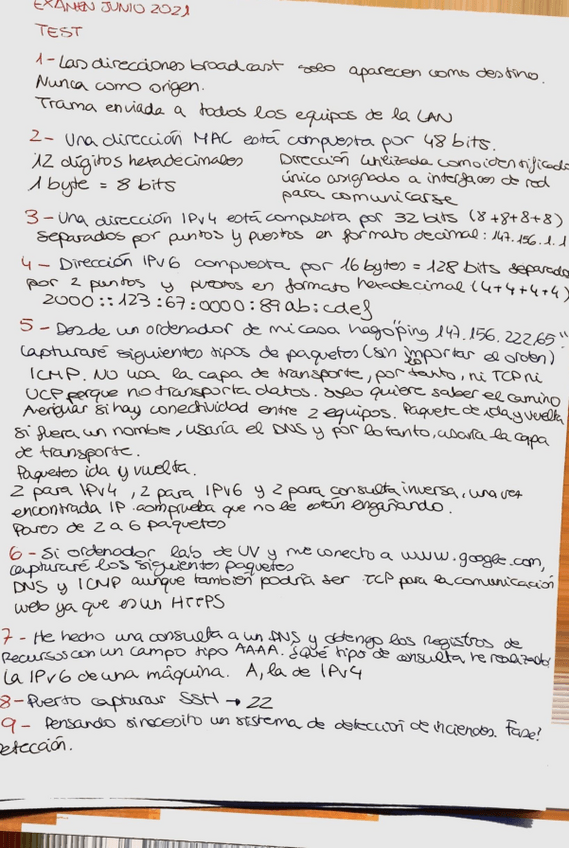 EXAMEN JUNIO 2021
TEST
1- Las direcciones broadcast solo aparecen como destino.
Nunca como origen.
Trama enviada a todos los equipos de la LAN
2- Una dirección MAC está compuesta por 48 bits.
12 dígitos hexadecimales Dirección utilizada como identificado
1 byte = 8 bits único asignado a interfaces de red
para comunicarse
3- Una dirección IPv4 está compuesta por 32 bits (8+8+8+8)
separados por puntos y puestos en formato decimal: 147.156.1.1
4- Dirección IPv6 compuesta por 16 bytes = 128 bits separado
por 2 puntos y puestos en formato hexadecimal (4+4+4+4)
2000::123:67:0000:89ab:cdef
5- Desde un ordenador de mi casa hago "ping 147.156.222.65"
Capturaré siguientes tipos de paquetes (sin importar el orden)
ICMP. No usa la capa de transporte, por lo tanto, ni TCP ni
UCP porque no transporta datos. Solo quiere saber el camino
Averiguar si hay conectividad entre 2 equipos. Paquete de ida y vuelta
Si fuera un nombre, usaría el DNS y por lo tanto, usaría la capa
de transporte.
Paquetes ida y vuelta.
2 para IPv4, 2 para IPv6 y 2 para consulta inversa, una vez
encontrada IP comprueba que no le están engañando.
Pares de 2 a 6 paquetes
6- Si ordenador lab de UV y me conecto a www.google.com,
capturaré los siguientes paquetes
DNS y ICMP aunque también podría ser TCP para la comunicación
web ya que es un HTTPS
7- He hecho una consulta a un DNS y obtengo los Registros de
Recursos con un campo tipo AAAA. ¿Qué tipo de consulta he realizado?
La IPv6 de una máquina. A, la de IPv4
8- Puerto capturar SSH → 22
9- Pensando si necesito un sistema de detección de incendos. Fase?
etección.